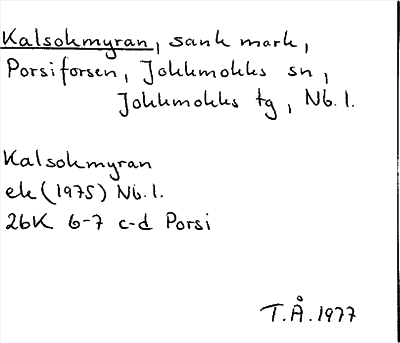 Kalsokmyran, sank mark,
Porsiforsen, Jokkmokks sn,
Jokkmokks tg, Nb. l.
Kalsokmyran
ek (1975) Nb. l.
26K 6-7 c-d Porsi
T.Å. 1977